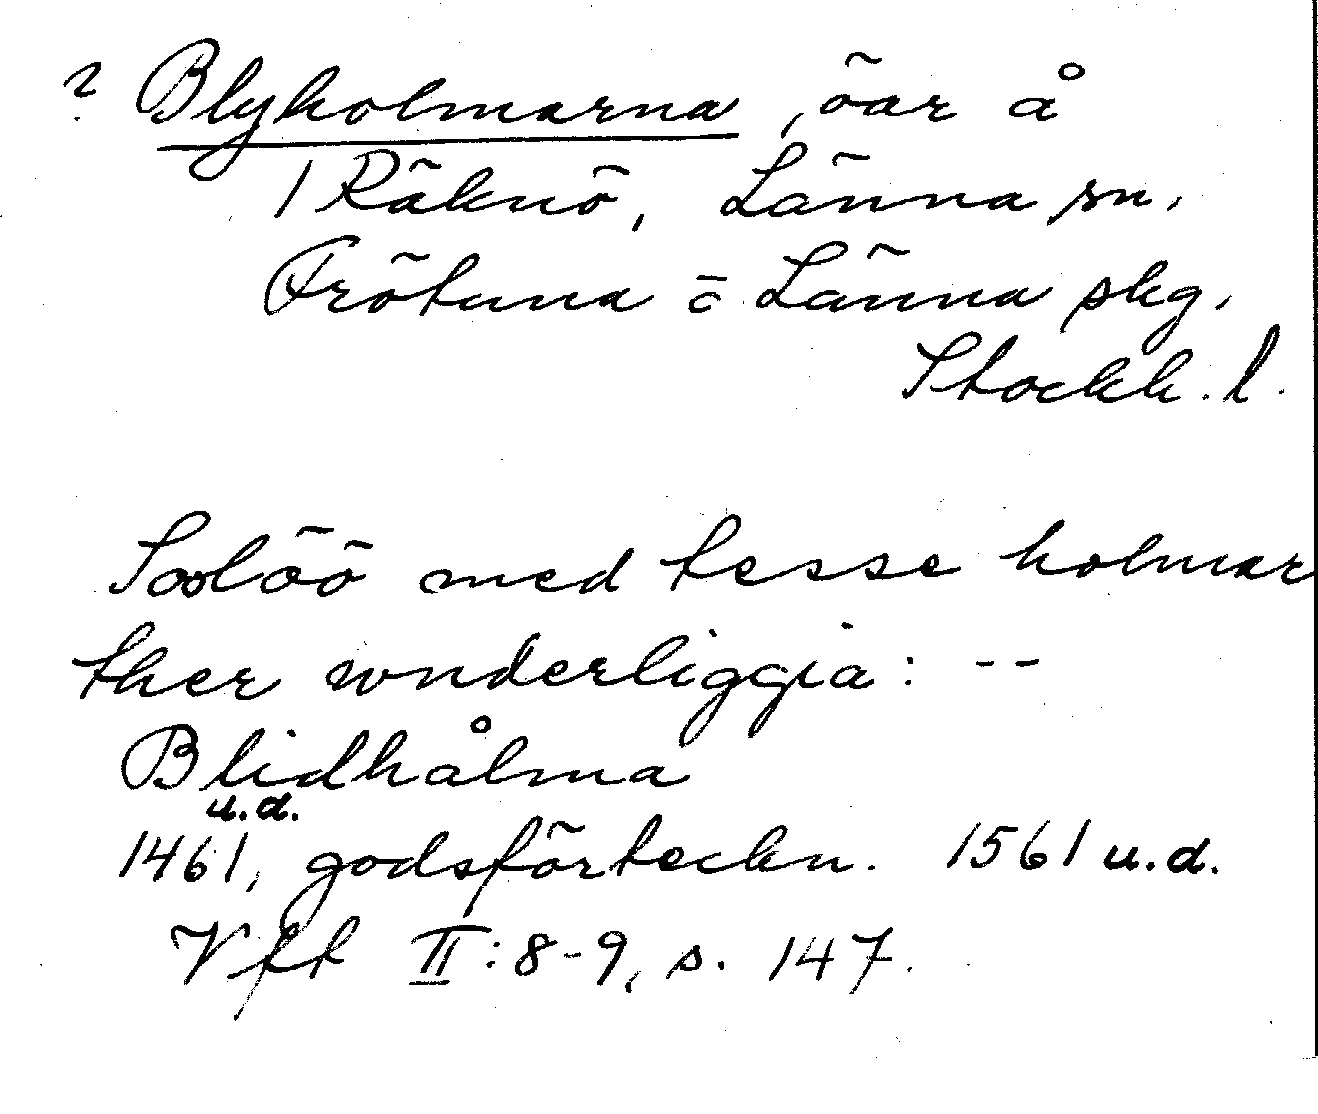 ? Blyholmarna, öar å
/ Räknö, Länna sn,
Frötuna o Länna skg.
Stockh. l.
Saxlöö med tesse holmar
ther wnderliggia: --
Blidhålma
u.d.
1461, godsförteckn. 1561 u.d.
Vft II:8-9, s. 147.